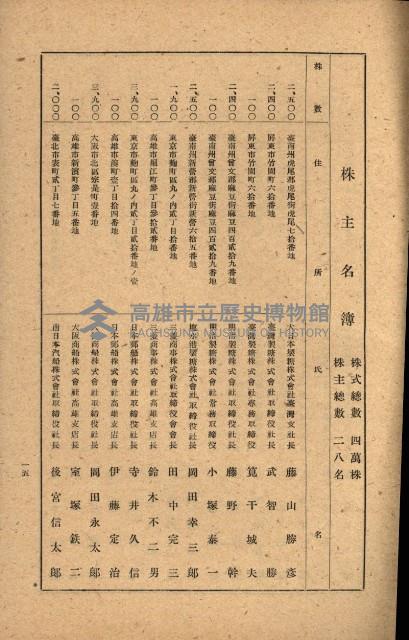 株主名簿
株式總數 四萬株
株主總數 二八名
株數 住所 氏名
二、五〇〇 臺南州虎尾郡虎尾街虎尾七拾番地 大日本製糖株式會社臺灣支社長 藤山勝彥
二、四〇〇 屏東市竹園町六拾番地 臺灣製糖株式會社取締役社長 武智勝
一〇〇 屏東市竹園町六拾番地 臺灣製糖株式會社專務取締役 筧干城夫
二、四〇〇 臺南州曾文郡麻豆街麻豆四百貳十九番地 明治製糖株式會社取締役社長 藤野幹
一〇〇 臺南州曾文郡麻豆街麻豆四百貳十九番地 明治製糖株式會社常務取締役 小塚泰一
二、五〇〇 臺南州新營郡新營街新營六拾五番地 鹽水港製糖株式會社取締役社長 岡田幸三郎
一、九〇〇 東京市麴町區丸ノ內貳丁目貳拾番地 三菱商事株式會社取締役會長 田中完三
一〇〇 高雄市堀江町參丁目參拾貳番地 三菱商事株式會社高雄支店長 鈴木不二男
三、九〇〇 東京市麴町區丸ノ內貳丁目貳拾番地ノ壹 日本郵船株式會社取締役社長 寺井久信
一〇〇 高雄市湊町壹丁目拾四番地 日本郵船株式會社高雄支店長 伊藤定治
三、九〇〇 大阪市北區宗是町壹番地 大阪商船株式會社取締役社長 岡田永太郎
一〇〇 高雄市新濱町參丁目五番地 大阪商船株式會社高雄支店長 室塚鉄二
二、〇〇〇 臺北市表町貳丁目七番地 南日本汽船株式會社取締役社長 後宮信太郎
一五
高雄市立歷史博物館
KAOHSIUNG MUSEUM OF HISTORY